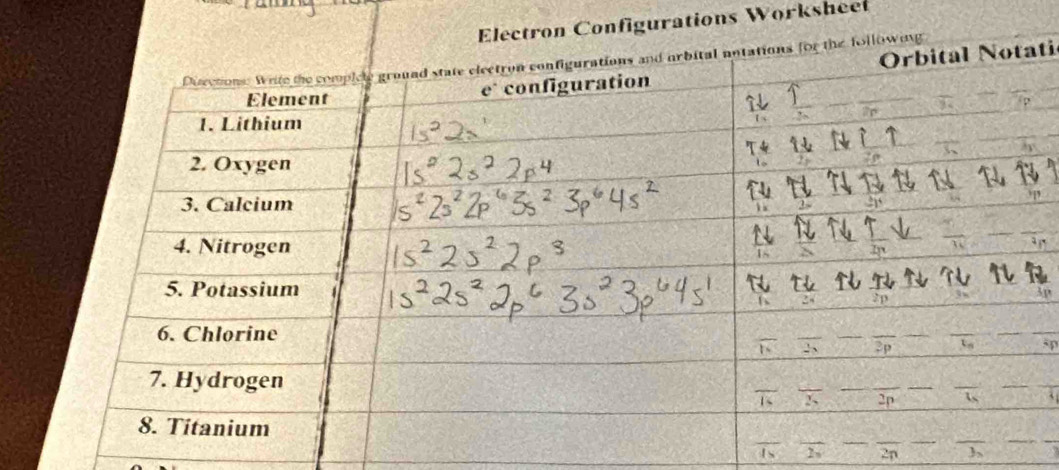 Electron Configurations Worksheet
Directions: Write the complete ground state electron configurations and orbital notations for the following
Element e⁻ configuration Orbital Notati
1. Lithium 1s² 2s¹ ↑↓ ↑
1s 2s 2p 3s 3p
2. Oxygen 1s² 2s² 2p⁴ ↑↓ ↑↓ ↑↓ ↑ ↑
1s 2s 2p 3s 3p
3. Calcium 1s² 2s² 2p⁶ 3s² 3p⁶ 4s² ↑↓ ↑↓ ↑↓ ↑↓ ↑↓ ↑↓ ↑↓ ↑↓ ↑
1s 2s 2p 3p
4. Nitrogen 1s² 2s² 2p³ ↑↓ ↑↓ ↑↓ ↑ ↓
1s 2p 3s 3p
5. Potassium 1s² 2s² 2p⁶ 3s² 3p⁶ 4s¹ ↑↓ ↑↓ ↑↓ ↑↓ ↑↓ ↑↓ ↑↓ ↑↓
1s 2s 2p 3s 3p
6. Chlorine
1s 2s 2p 3s 3p
7. Hydrogen
1s 2s 2p 3s
8. Titanium
1s 2s 2p 3s